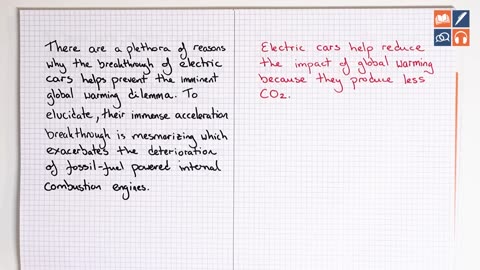 There are a plethora of reasons
why the breakthrough of electric
cars helps prevent the imminent
global warming dilemma. To
elucidate, their immense acceleration
breakthrough is mesmerizing which
exacerbates the deterioration
of fossil-fuel powered internal
combustion engines.
Electric cars help reduce
the impact of global warming
because they produce less
CO2.